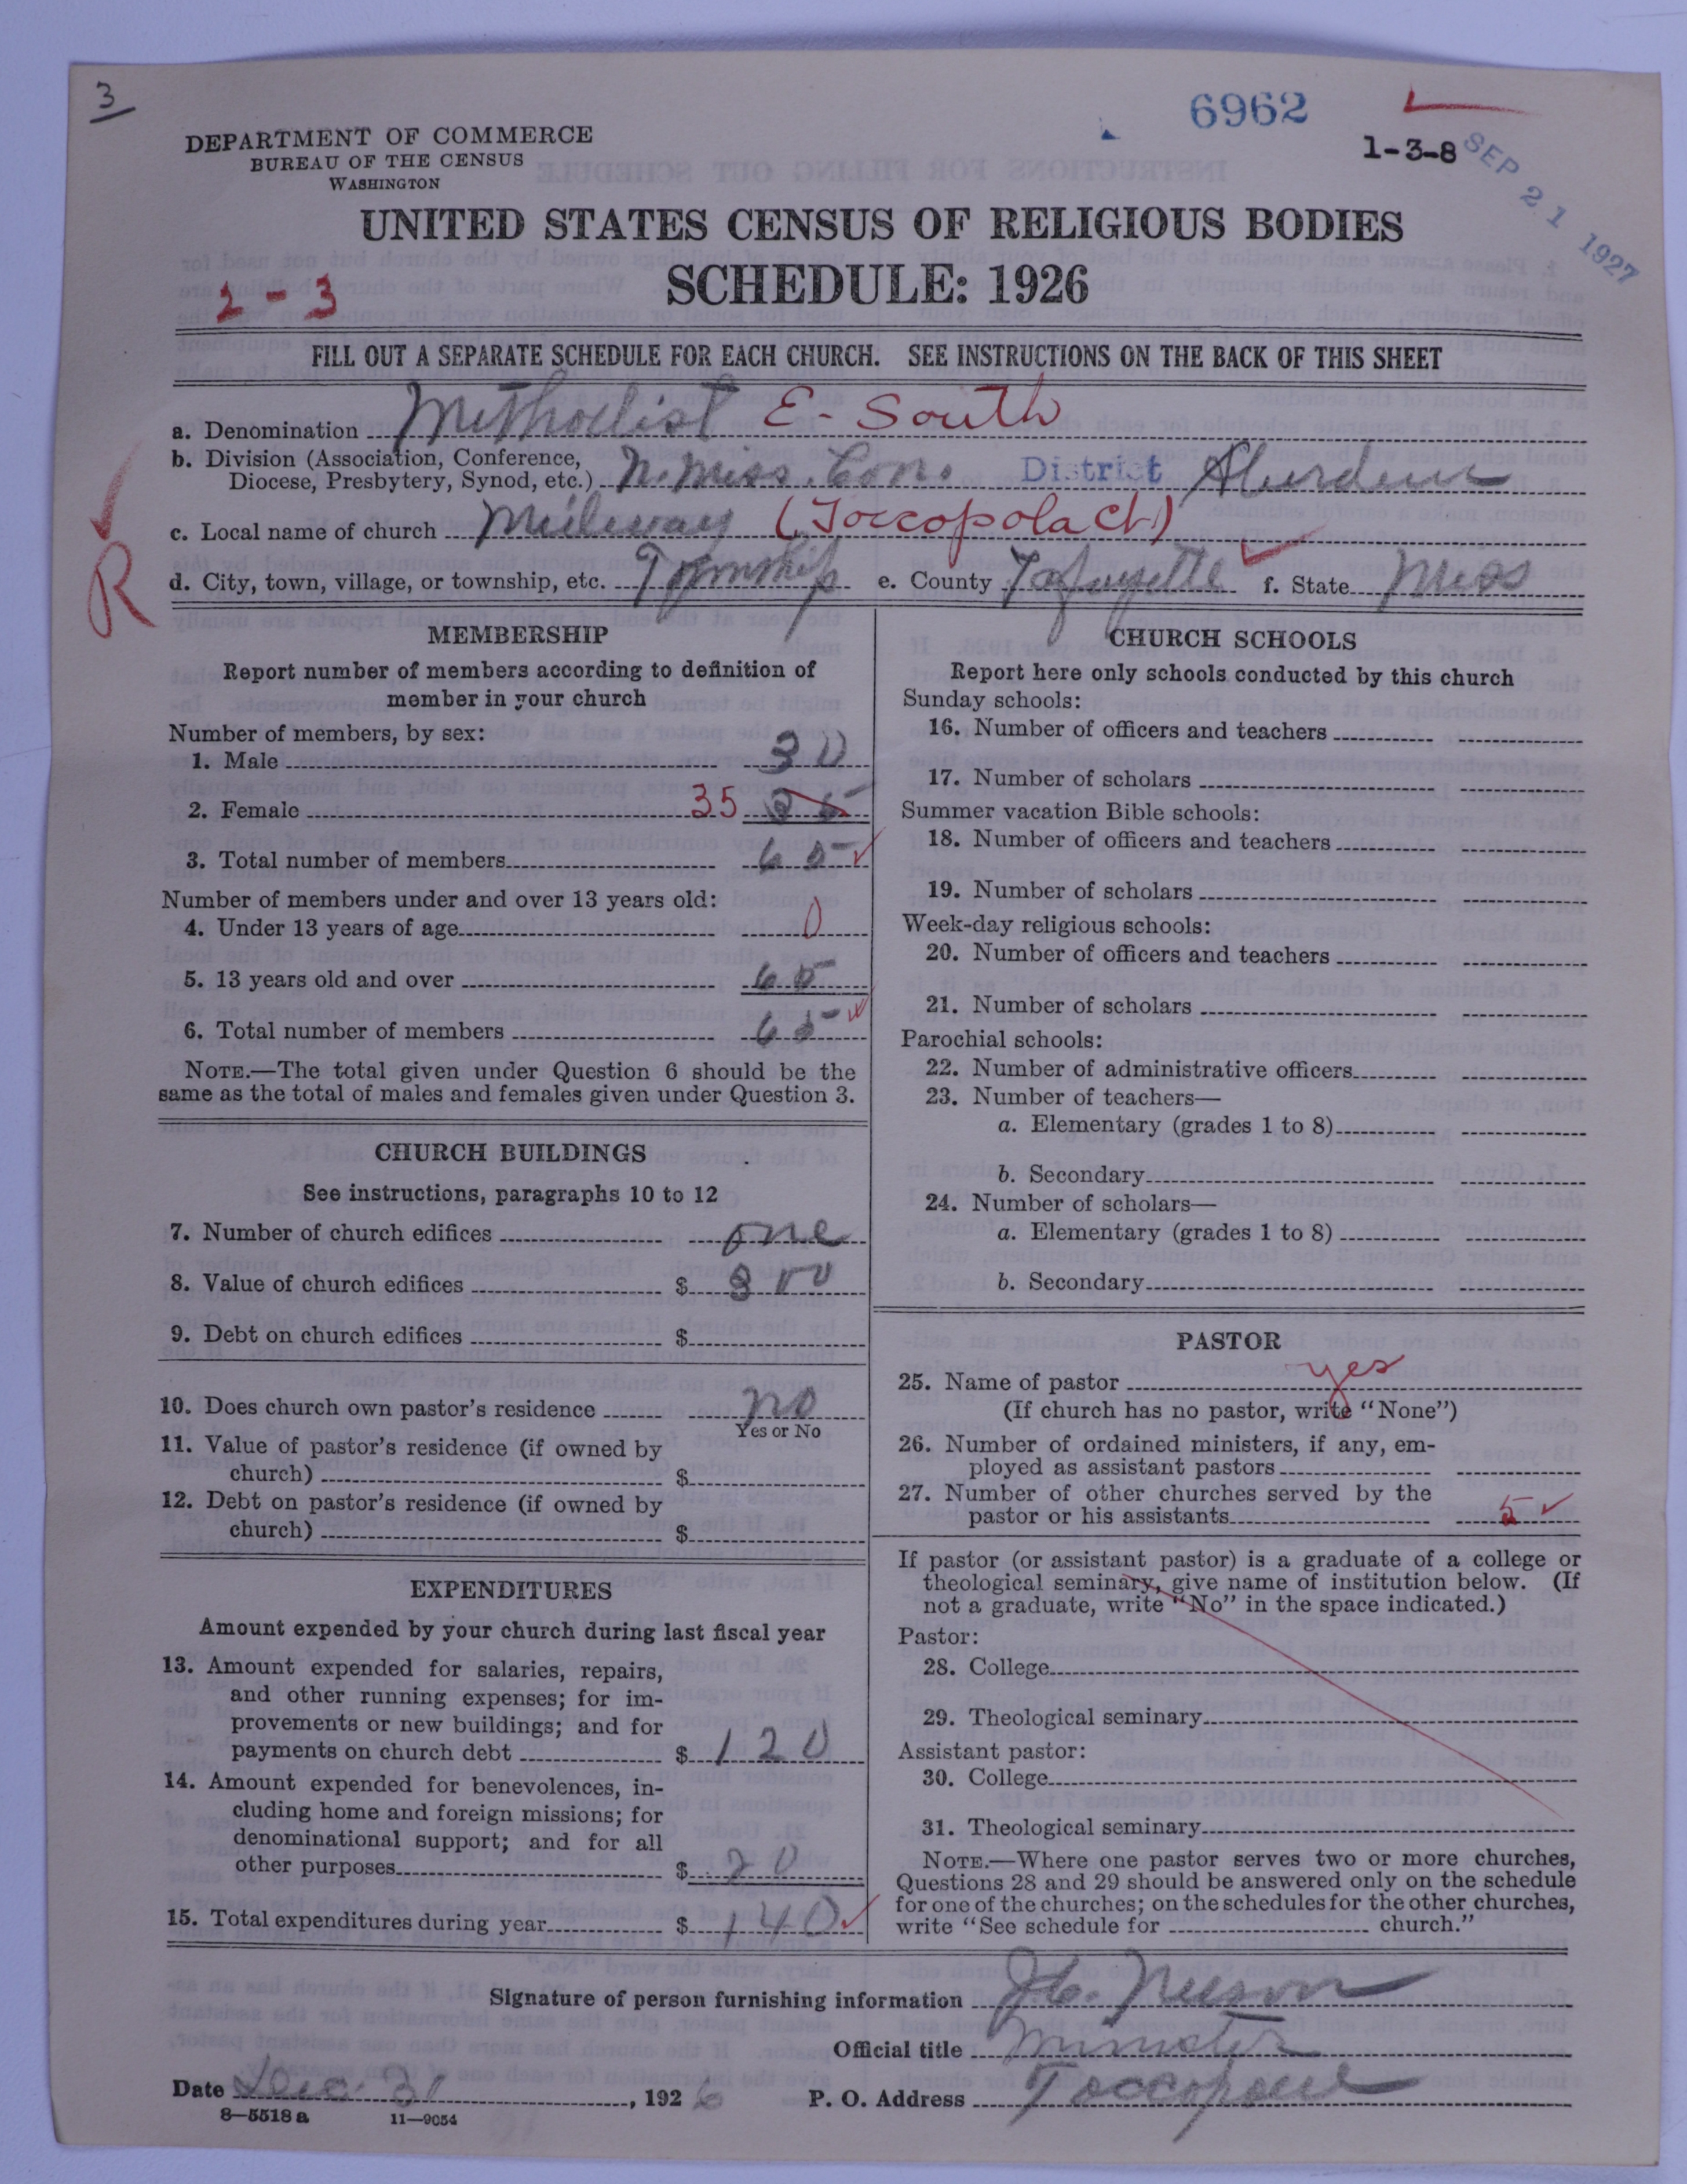 3
6962
1-3-8
SEP 21 1927
DEPARTMENT OF COMMERCE
BUREAU OF THE CENSUS
WASHINGTON
UNITED STATES CENSUS OF RELIGIOUS BODIES
SCHEDULE: 1926
2-3
FILL OUT A SEPARATE SCHEDULE FOR EACH CHURCH. SEE INSTRUCTIONS ON THE BACK OF THIS SHEET
a. Denomination Methodist E- South
b. Division (Association, Conference,
Diocese, Presbytery, Synod, etc.) N. Miss. Con. District Aberdeen
c. Local name of church Midway (Toccopola Ch)
R
d. City, town, village, or township, etc. Township e. County Lafayette f. State Miss
MEMBERSHIP
Report number of members according to definition of
member in your church
Number of members, by sex:
1. Male 30
2. Female 35
3. Total number of members 65
Number of members under and over 13 years old:
4. Under 13 years of age 0
5. 13 years old and over 65
6. Total number of members 65
NOTE.—The total given under Question 6 should be the
same as the total of males and females given under Question 3.
CHURCH BUILDINGS
See instructions, paragraphs 10 to 12
7. Number of church edifices one
8. Value of church edifices $ 800
9. Debt on church edifices $
10. Does church own pastor's residence no
Yes or No
11. Value of pastor's residence (if owned by
church) $
12. Debt on pastor's residence (if owned by
church) $
EXPENDITURES
Amount expended by your church during last fiscal year
13. Amount expended for salaries, repairs,
and other running expenses; for im-
provements or new buildings; and for
payments on church debt $ 120
14. Amount expended for benevolences, in-
cluding home and foreign missions; for
denominational support; and for all
other purposes $ 20
15. Total expenditures during year $ 140
CHURCH SCHOOLS
Report here only schools conducted by this church
Sunday schools:
16. Number of officers and teachers
17. Number of scholars
Summer vacation Bible schools:
18. Number of officers and teachers
19. Number of scholars
Week-day religious schools:
20. Number of officers and teachers
21. Number of scholars
Parochial schools:
22. Number of administrative officers
23. Number of teachers—
a. Elementary (grades 1 to 8)
b. Secondary
24. Number of scholars—
a. Elementary (grades 1 to 8)
b. Secondary
PASTOR
25. Name of pastor yes
(If church has no pastor, write "None")
26. Number of ordained ministers, if any, em-
ployed as assistant pastors
27. Number of other churches served by the
pastor or his assistants 5
If pastor (or assistant pastor) is a graduate of a college or
theological seminary, give name of institution below. (If
not a graduate, write "No" in the space indicated.)
Pastor:
28. College
29. Theological seminary
Assistant pastor:
30. College
31. Theological seminary
NOTE.—Where one pastor serves two or more churches,
Questions 28 and 29 should be answered only on the schedule
for one of the churches; on the schedules for the other churches,
write "See schedule for church."
Signature of person furnishing information
Official title Minister
Date Dec. 31, 1926 P. O. Address Toccopola
8—5518 a 11—9054